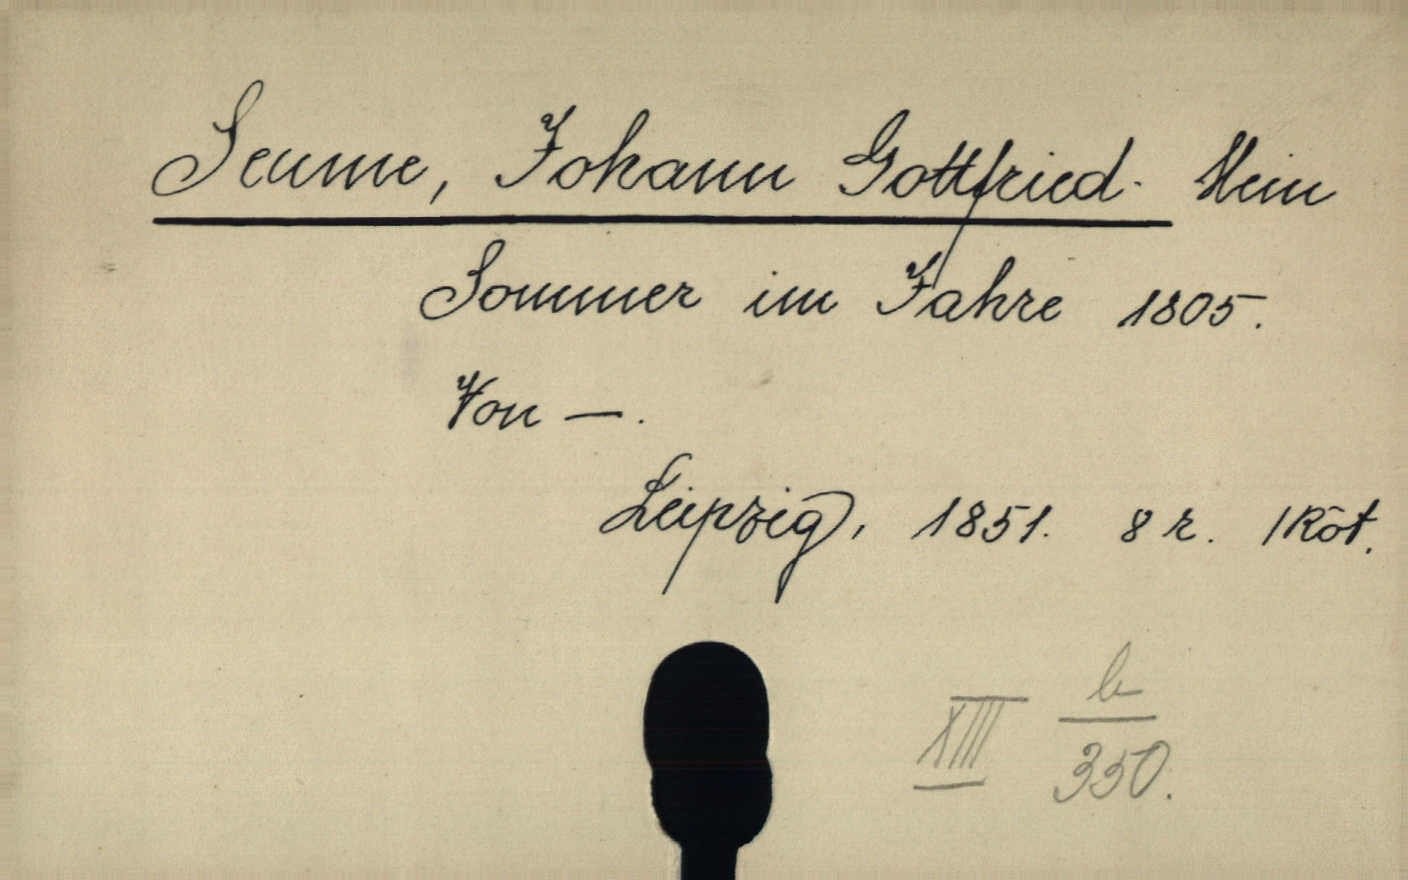 Seume, Johann Gottfried. Mein
Sommer im Jahre 1805.
Von —.
Leipzig, 1851. 8 r. 1 Köt.
XIII b
350.